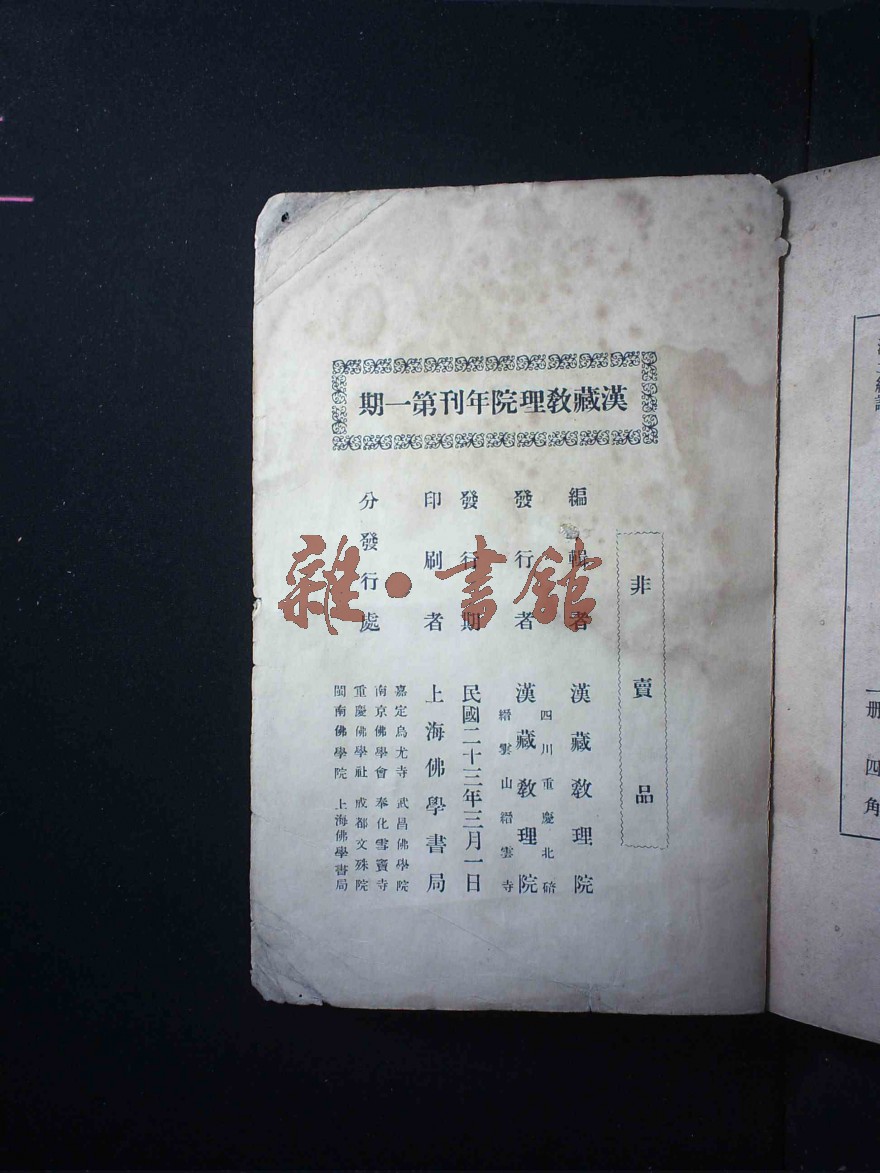 漢藏教理院年刊第一期
非賣品
編輯者 漢藏教理院
四川重慶北碚
發行者 漢藏教理院
縉雲山縉雲寺
發行期 民國二十三年三月一日
印刷者 上海佛學書局
分發行處
嘉定烏尤寺 武昌佛學院
南京佛學會 奉化雪竇寺
重慶佛學社 成都文殊院
閩南佛學院 上海佛學書局
雜·書館
册 四角